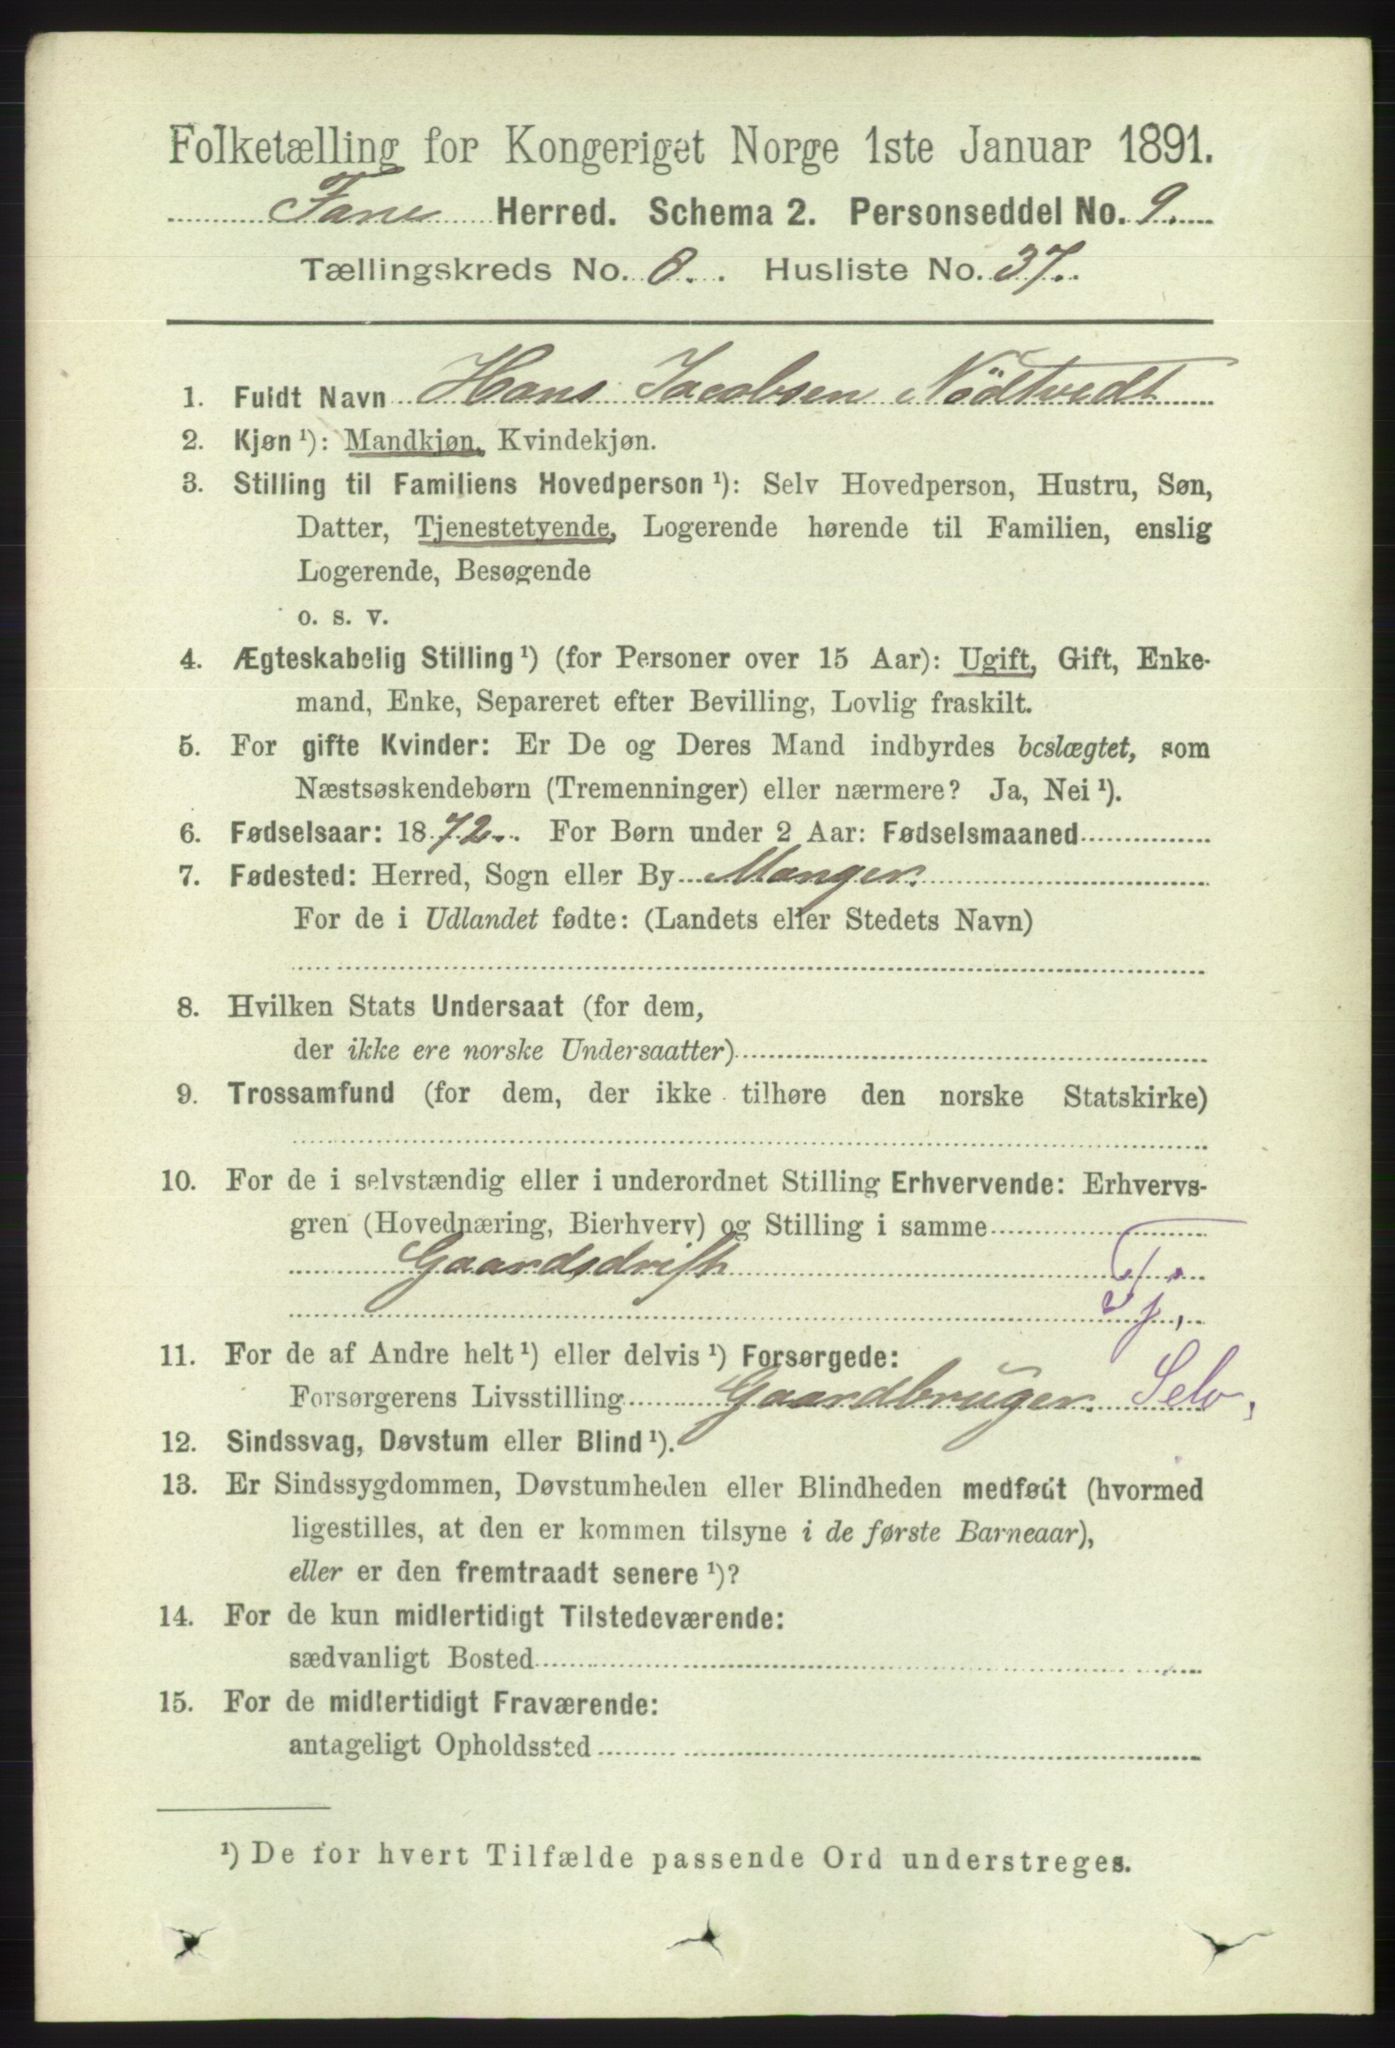 Folketælling for Kongeriget Norge 1ste Januar 1891.
Fane Herred. Schema 2. Personseddel No. 9.
Tællingskreds No. 8. Husliste No. 37.
1. Fuldt Navn Hans Jacobsen Nödtvedt
2. Kjøn ¹): Mandkjøn, Kvindekjøn.
3. Stilling til Familiens Hovedperson ¹): Selv Hovedperson, Hustru, Søn,
Datter, Tjenestetyende, Logerende hørende til Familien, enslig
Logerende, Besøgende
o. s. v.
4. Ægteskabelig Stilling ¹) (for Personer over 15 Aar): Ugift, Gift, Enke-
mand, Enke, Separeret efter Bevilling, Lovlig fraskilt.
5. For gifte Kvinder: Er De og Deres Mand indbyrdes beslægtet, som
Næstsøskendebørn (Tremenninger) eller nærmere? Ja, Nei ¹).
6. Fødselsaar: 1872. For Børn under 2 Aar: Fødselsmaaned
7. Fødested: Herred, Sogn eller By Manger.
For de i Udlandet fødte: (Landets eller Stedets Navn)
8. Hvilken Stats Undersaat (for dem,
der ikke ere norske Undersaatter)
9. Trossamfund (for dem, der ikke tilhøre den norske Statskirke)
10. For de i selvstændig eller i underordnet Stilling Erhvervende: Erhvervs-
gren (Hovednæring, Bierhverv) og Stilling i samme
Gaardsdrift Tj.
11. For de af Andre helt ¹) eller delvis ¹) Forsørgede:
Forsørgerens Livsstilling Gaardbruger. Selv,
12. Sindssvag, Døvstum eller Blind ¹).
13. Er Sindssygdommen, Døvstumheden eller Blindheden medfødt (hvormed
ligestilles, at den er kommen tilsyne i de første Barneaar),
eller er den fremtraadt senere ¹)?
14. For de kun midlertidigt Tilstedeværende:
sædvanligt Bosted
15. For de midlertidigt Fraværende:
antageligt Opholdssted
¹) De for hvert Tilfælde passende Ord understreges.